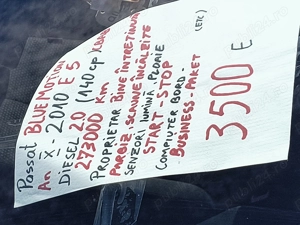 Passat BLUEMOTION
An X - 2010 E 5
DIESEL 2.0 (140 CP
273000 Km
PROPRIETAR BINE INTRETINUTA
PARBIZ, SCAUNE INCALZITE
SENZORI LUMINĂ PLOAIE
START - STOP
COMPIUTER BORD -
BUSINESS - PAKET
(ETC)
3500 E